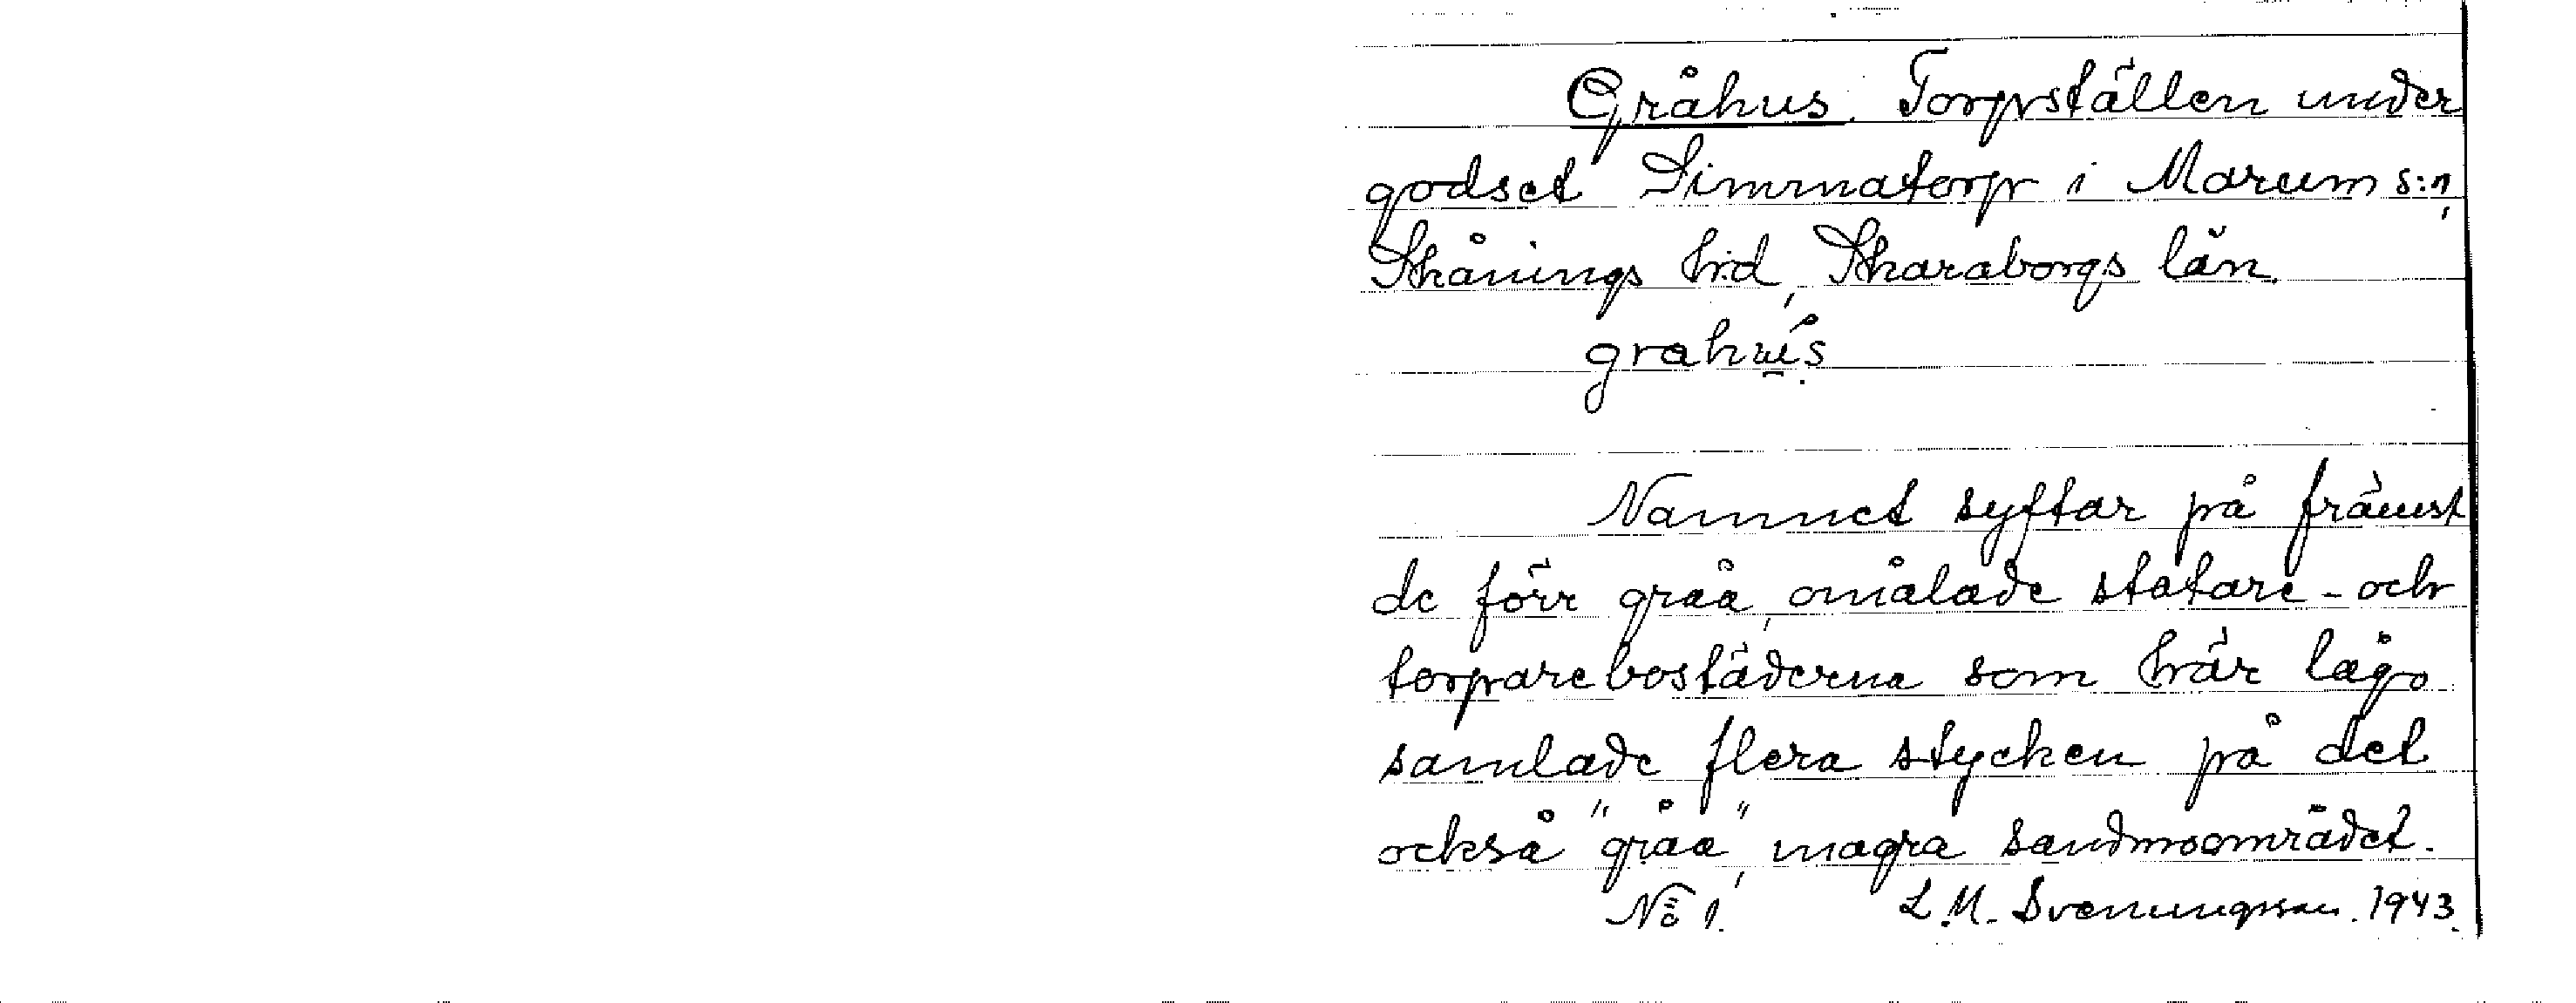 Gråhus. Torpställen under
godset Simmatorp i Marum s:n,
Skånings hrd, Skaraborgs län.
Namnet syftar på främst
de förr gråa, omålade statare- och
torparebostäderna som här lågo
samlade flera stycken på det
också "gråa", magra sandmoområdet.
No 1. L.M. Svenungsson. 1943.